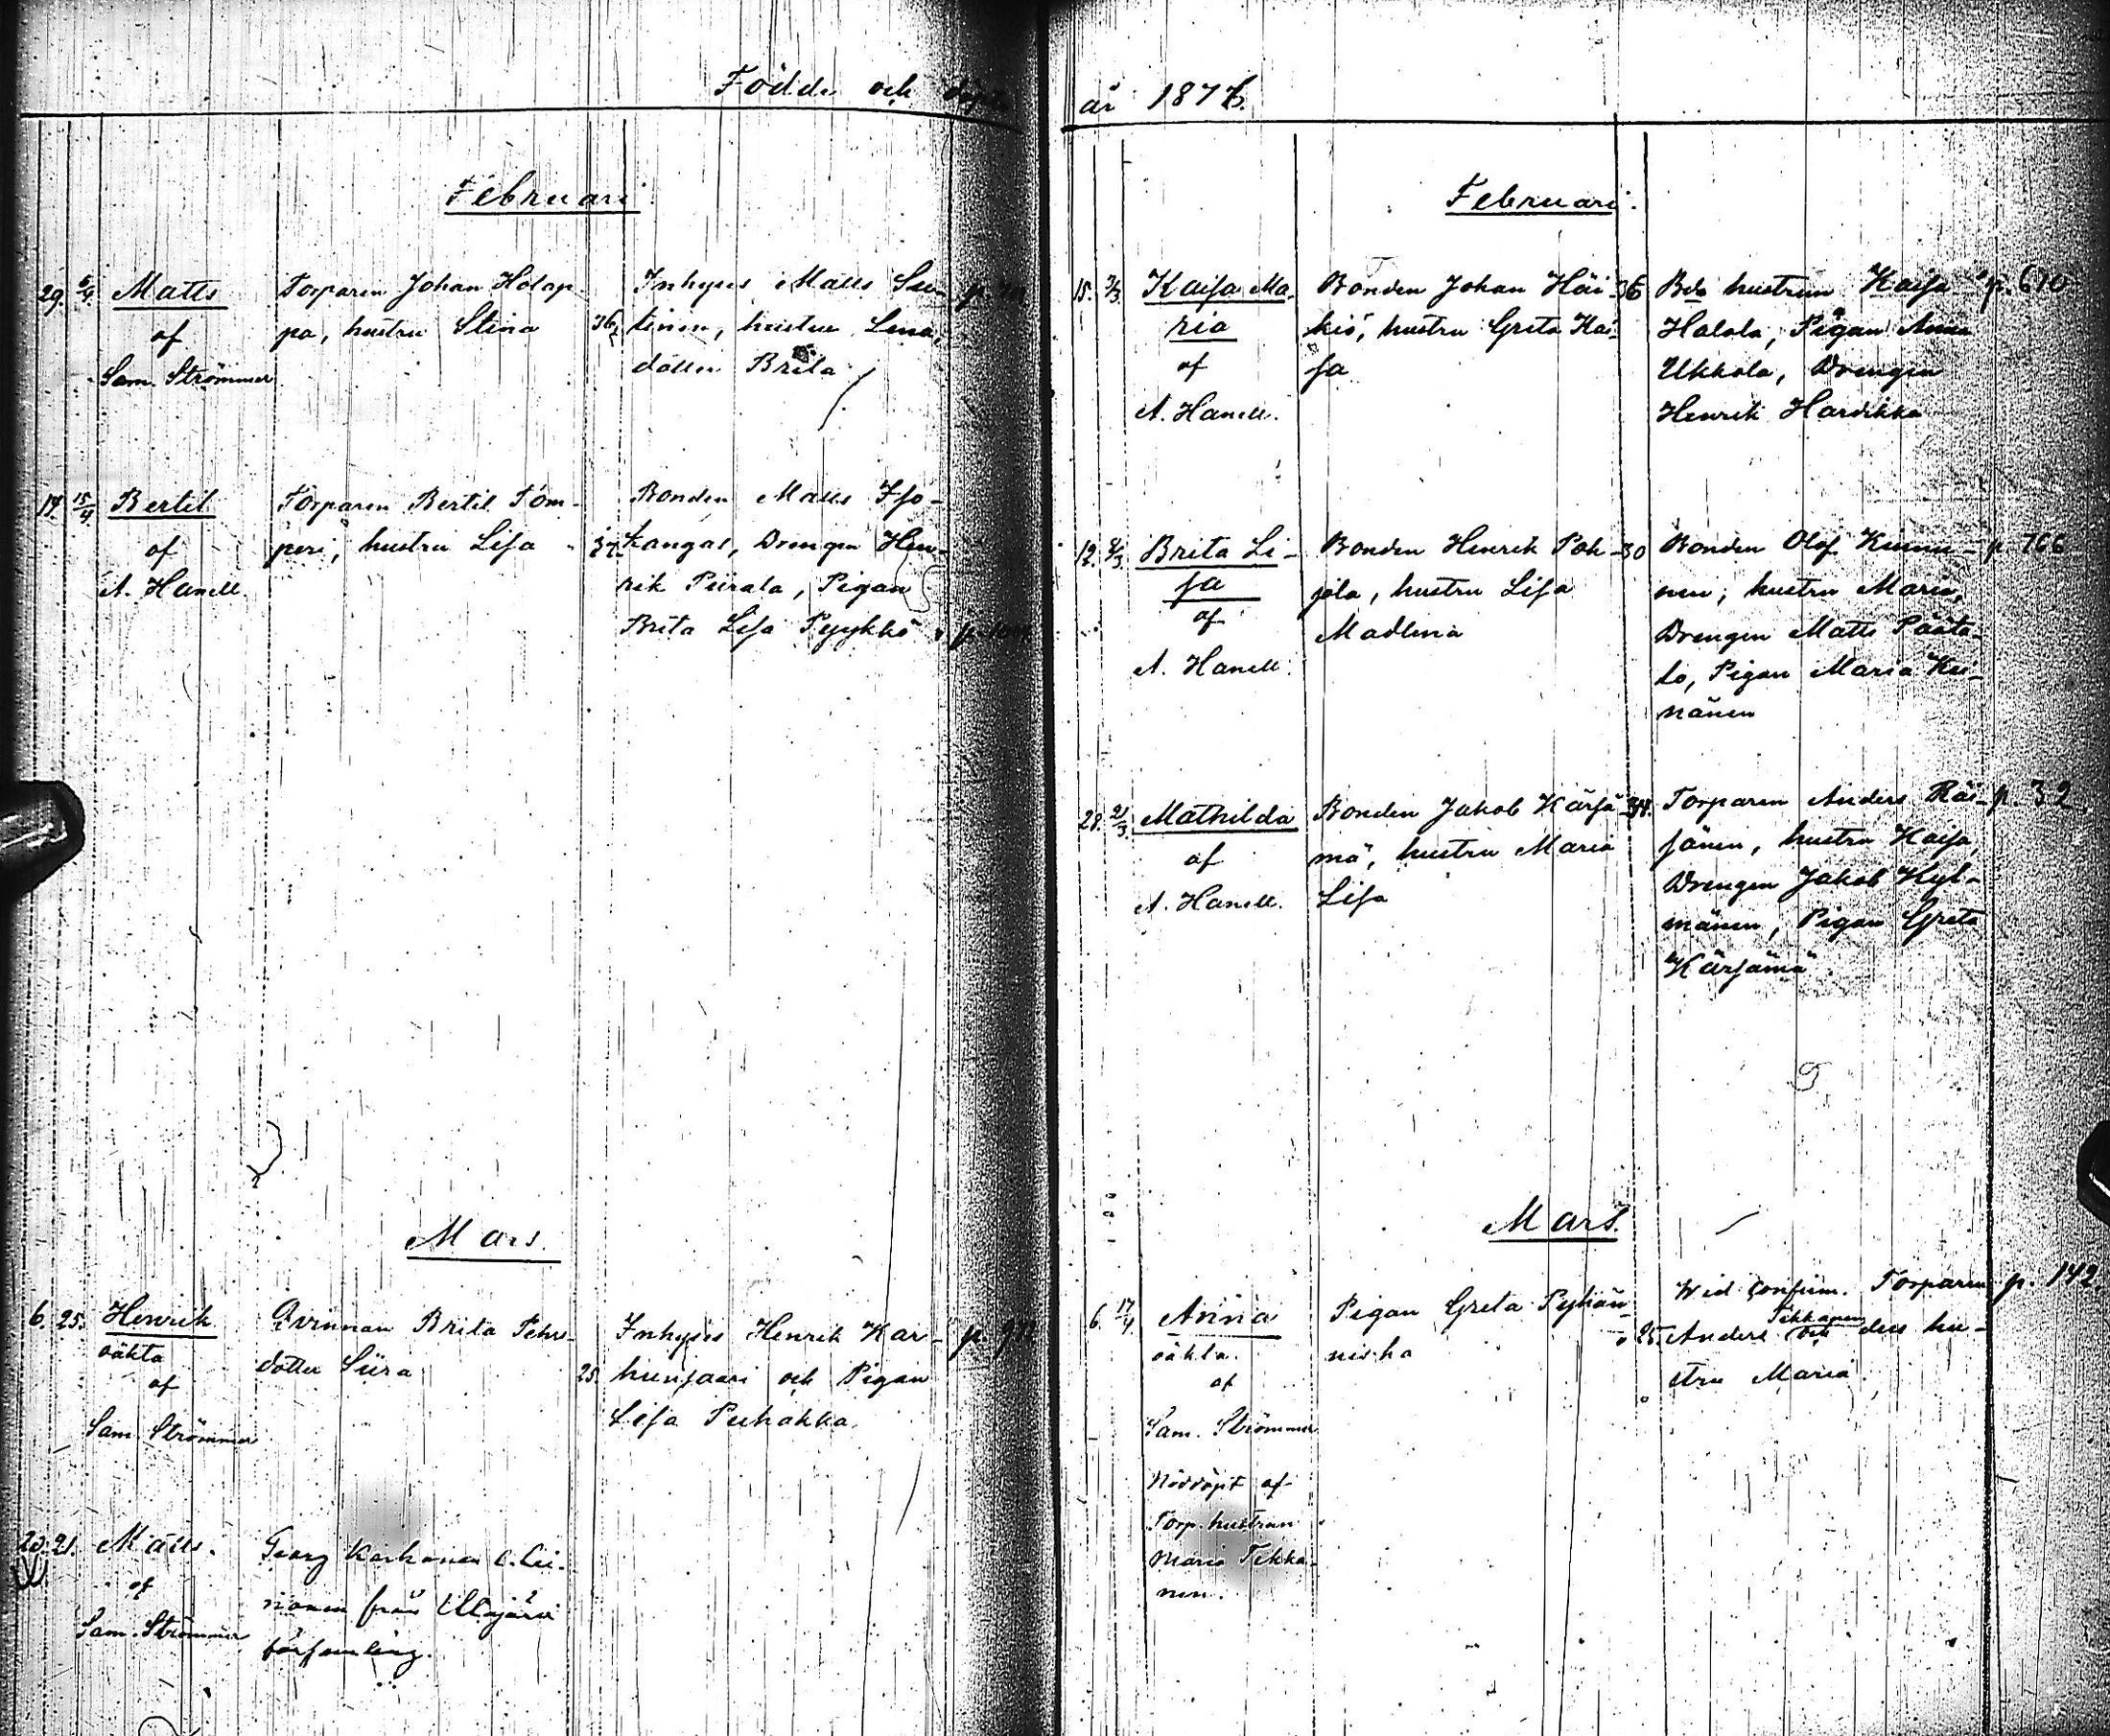 Födde och döpte
Februari
29. 5/4. Matts
af
Sam. Strömmer
Torparen Johan Holap-
pa, hustru Stina
36.
Inhyses Matts Suu-
tinen, hustru Lena,
dotter Brita
14. 15/4. Bertil
af
A. Hanell.
Torparen Bertil Töm-
peri, hustru Lisa
37.
Bonden Matts Iso-
kangas, Drengen Hen-
rik Piirala, Pigan
Brita Lisa Pyykkö
Mars.
6. 25. Henrik
oäkta
af
Sam. Strömmer
Qvinnan Brita Pehrs-
dotter Siira
25.
Inhyses Henrik Kar-
hunsaari och Pigan
Lisa Puhakka.
20. 21. Matts.
af
Sam. Strömmer
Georg Karhanen
från
församling.
år 1876.
Februari.
15. 7/3. Kaisa Ma-
ria
af
A. Hanell.
Bonden Johan Häi-
kiö, hustru Greta Kai-
sa
36
Bde hustrun Kaisa p. 610
Halola, Pigan Anna
Ukkola, Drengen
Henrik Hardikka
12. 8/3. Brita Li-
sa
af
A. Hanell.
Bonden Henrik Poh-
jola, hustru Lisa
Madlena
30
Bonden Olof Kinnu- p. 766
nen, hustru Maria,
Drengen Matts Pääta-
lo, Pigan Maria Kei-
nänen
28. 21/3. Mathilda
af
A. Hanell.
Bonden Jakob Kärsä-
mä, hustru Maria
Lisa
34.
Torparen Anders Räi- p. 39
sänen, hustru Kaisa,
Drengen Jakob Kyl-
mänen, Pigan Greta
Kärsämä
Mars.
6. 17/4 Anna
oäkta.
af
Sam. Strömmer
Nöddöpt af
Torp. hustrun
Maria Tikka-
nen.
Pigan Greta Pyhän-
niska
25.
Wid confirm. Torparen p. 142
Tikkanen
Anders och des hu-
stru Maria.